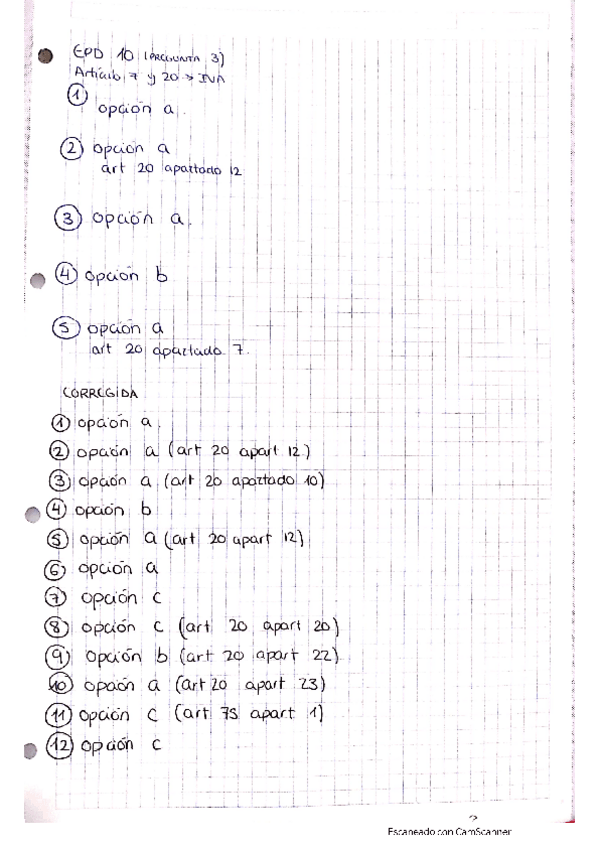 EPD 10 (PREGUNTA 3)
Artículo 7 y 20 → IVA
① opción a.
② opción a
art 20 apartado 12
③ opción a.
④ opción b
⑤ opción a
art 20 apartado 7.
CORREGIDA
① opción a.
② opción a (art 20 apart 12)
③ opción a (art 20 apartado 10)
④ opción b
⑤ opción a (art 20 apart 12)
⑥ opción a
⑦ opción c
⑧ opción c (art 20 apart 20)
⑨ opción b (art 20 apart 22)
⑩ opción a (art 20 apart 23)
⑪ opción c (art 75 apart 1)
⑫ opción c
Escaneado con CamScanner